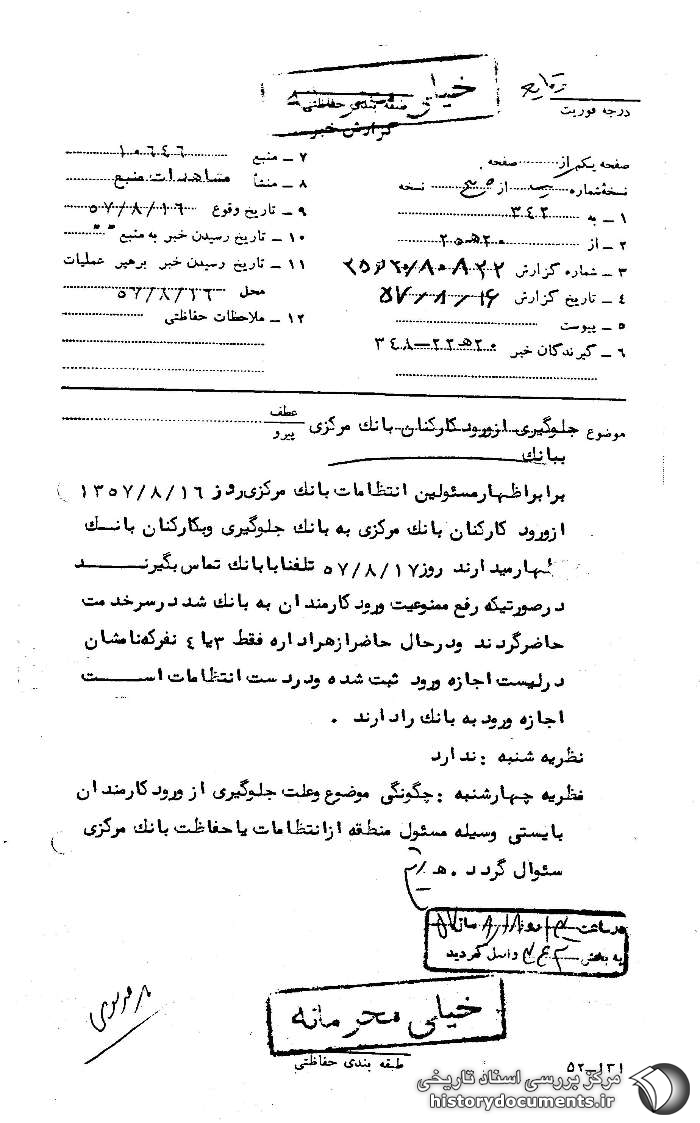 خیلی محرمانه
طبقه بندی حفاظتی
گزارش خبر
درجه فوریت
صفحه یکم از صفحه
نسخه شماره از پنج نسخه
۱ – به ۳۴۲
۲ – از ۲۰هـ۲۵
۳ – شماره گزارش
۴ – تاریخ گزارش ۵۷/۸/۱۶
۵ – پیوست
۶ – گیرندگان خبر ۲۰هـ۲۲–۳۴۸
۷ – منبع ۱۰۶۴۶
۸ – منشأ مشاهدات منبع
۹ – تاریخ وقوع ۵۷/۸/۱۶
۱۰ – تاریخ رسیدن خبر به منبع " "
۱۱ – تاریخ رسیدن خبر برهبر عملیات
محل ۵۷/۸/۱۶
۱۲ – ملاحظات حفاظتی
موضوع جلوگیری از ورود کارکنان بانك مرکزی
عطف
پیرو
ببانك
برابر اظهار مسئولین انتظامات بانك مرکزی روز ۱۳۵۷/۸/۱۶
از ورود کارکنان بانك مرکزی به بانك جلوگیری وبکارکنان بانك
میدارند روز ۵۷/۸/۱۷ تلفنا بابانك تماس بگیرند
درصورتیکه رفع ممنوعیت ورود کارمندان به بانك شد درسرخدمت
حاضرگردند ودرحال حاضر ازهراداره فقط ۳ یا ٤ نفرکه نامشان
درلیست اجازه ورود ثبت شده ودردست انتظامات است
اجازه ورود به بانك را دارند .
نظریه شنبه : ندارد
نظریه چهارشنبه : چگونگی موضوع وعلت جلوگیری از ورود کارمندان
بایستی وسیله مسئول منطقه ازانتظامات یاحفاظت بانك مرکزی
سئوال گردد . هـ
واصل گردید
خیلی محرمانه
طبقه بندی حفاظتی
۵۲–۱۳۱
مرکز بررسی اسناد تاریخی
historydocuments.ir